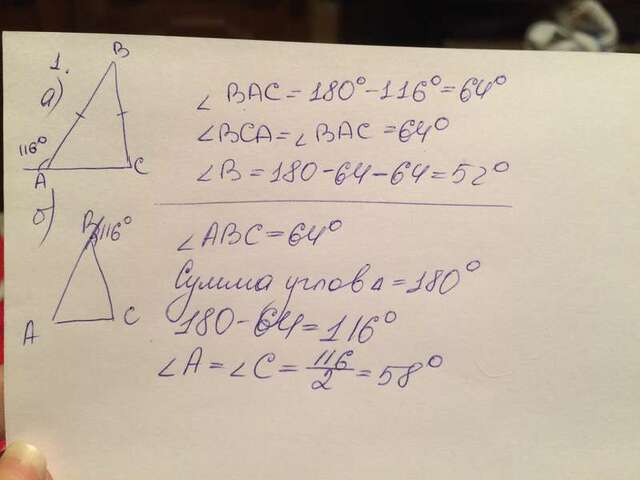 1.
а)
B
116°
A
C
∠ BAC = 180° - 116° = 64°
∠BCA = ∠BAC = 64°
∠B = 180 - 64 - 64 = 52°
б)
B 116°
A
C
∠ABC = 64°
Сумма углов Δ = 180°
180 - 64 = 116°
∠A = ∠C = 116/2 = 58°